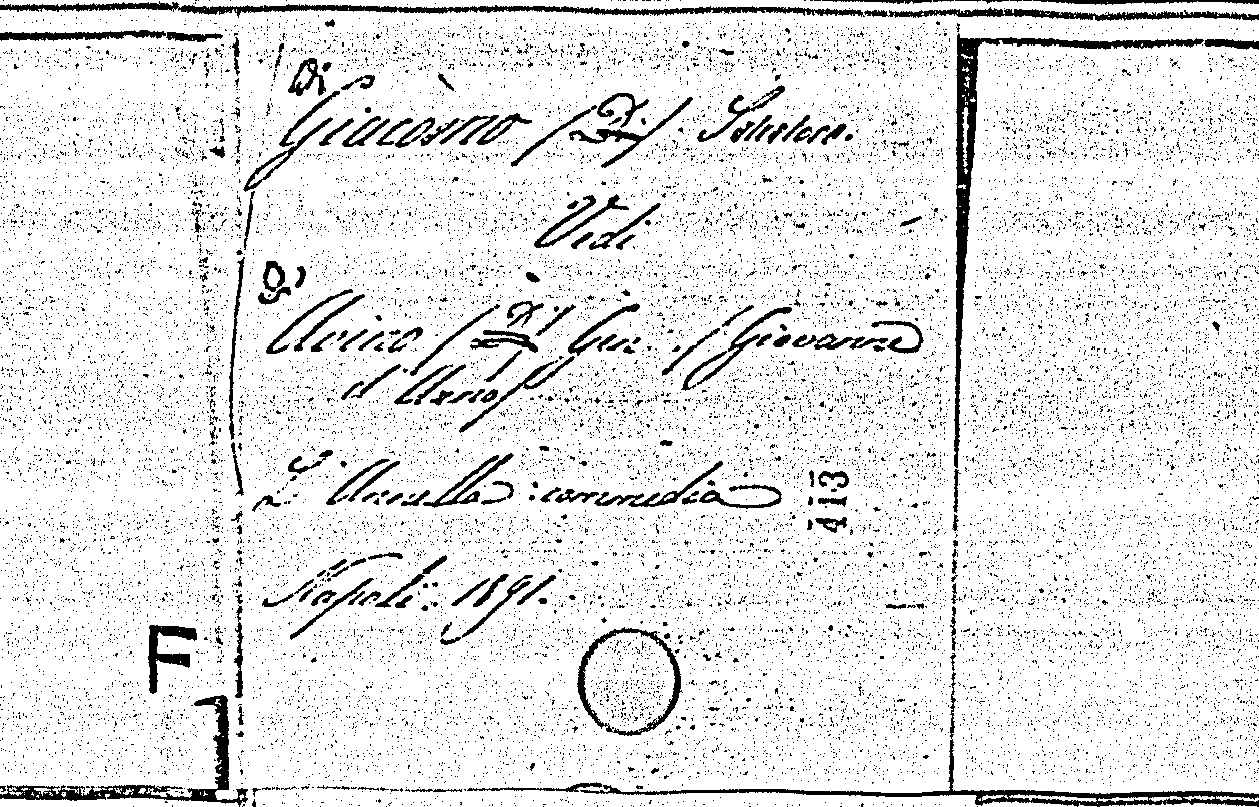 Di
Giacomo (Di). Salvatore.
Vedi
D'
Avino (D') Gen. (Giovanni
d'Arno)
L'Annella: commedia
Napoli: 1891.
413
F